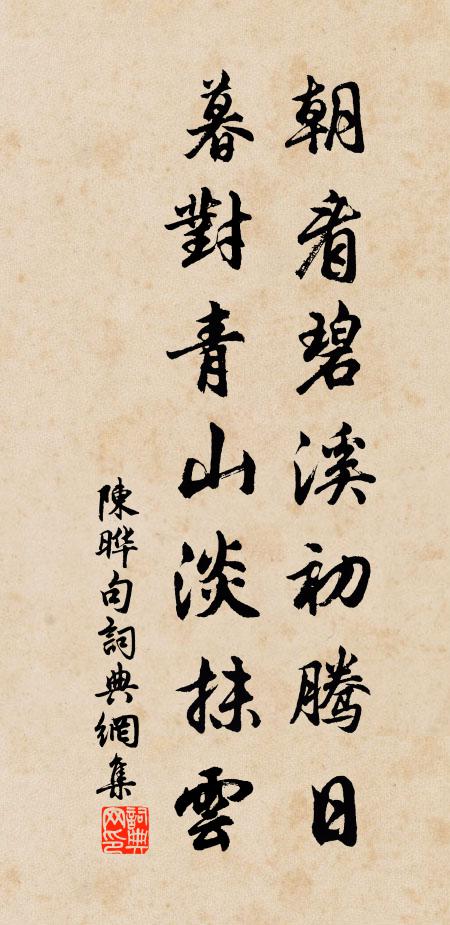 朝看碧溪初腾日
暮對青山淡抹雲
陳晔句詞典網集
詞典网印